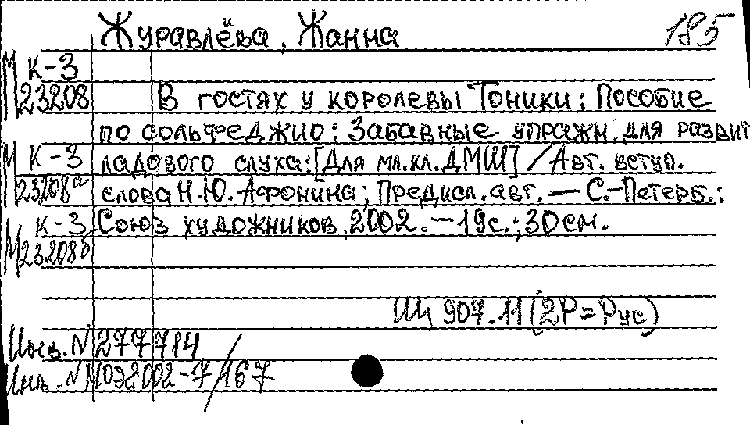 Журавлёва, Жанна 185
К-3
М 23208 В гостях у королевы Тоники: Пособие
по сольфеджио: Забавные упражн. для развит
М К-3 ладового слуха: [Для мл.кл. ДМШ] / Авт. вступ.
23208а слова Н.Ю. Афонина; Предисл. авт. — С.-Петерб.:
К-3 Союз художников, 2002. — 19с.; 30см.
М 23208б
Щ 907.11(2Р=Рус)
Инв. N 277714
Инв. N МОЭ2002-7/167